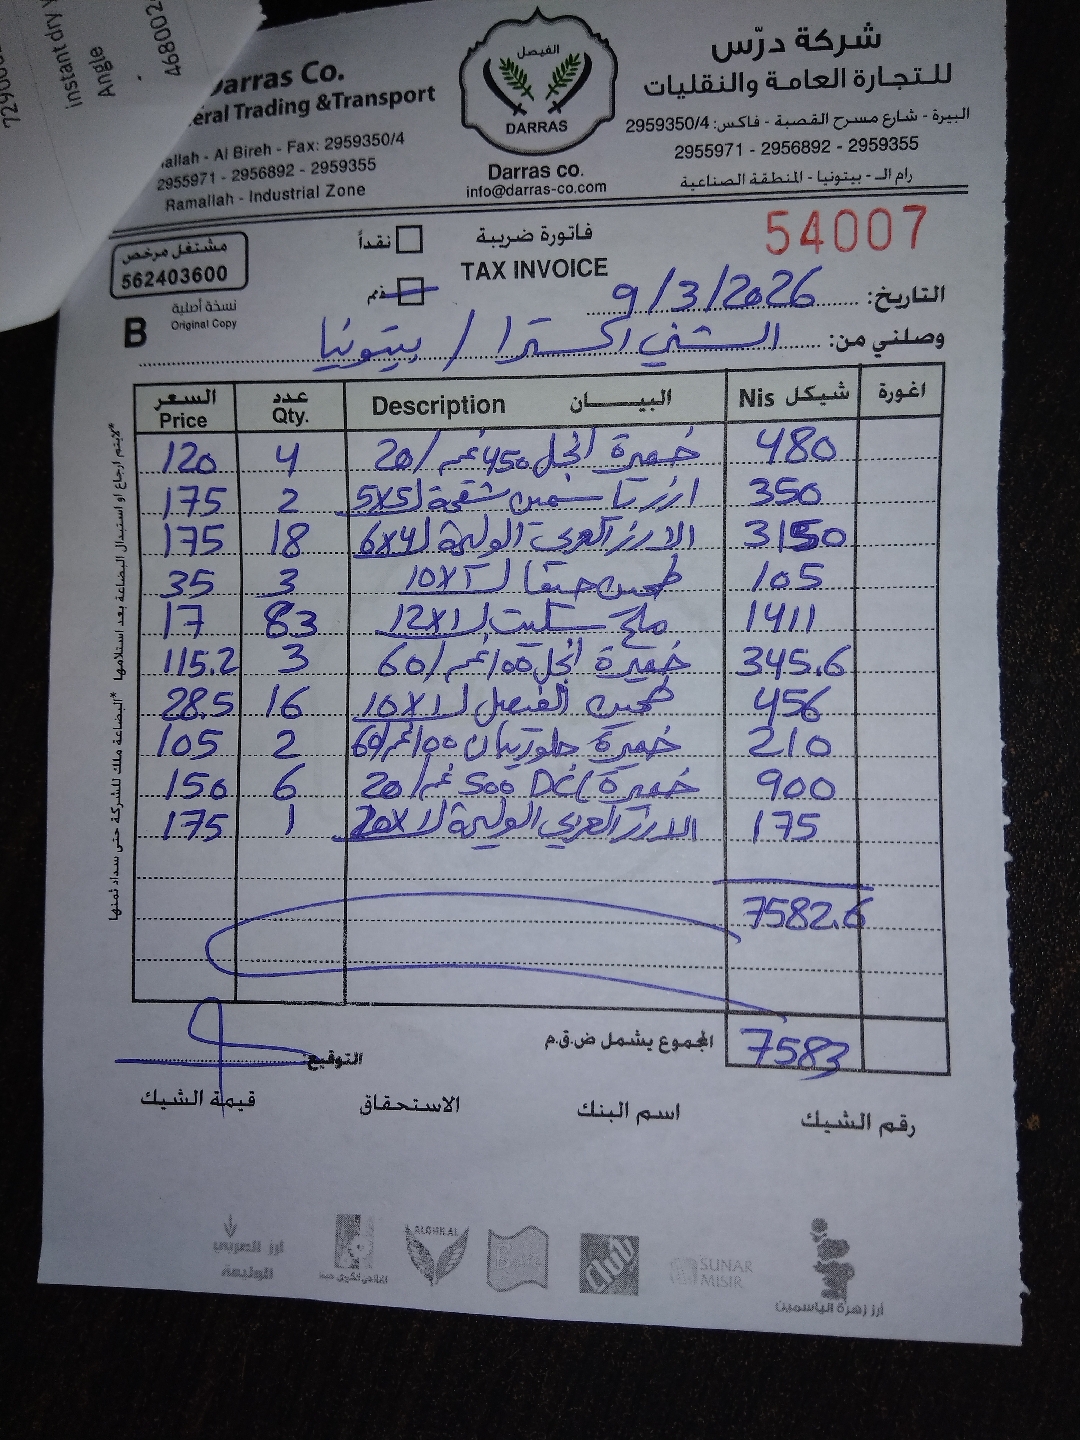 7290
instant dry y
Angle
468002
Darras Co.
eral Trading &Transport
allah - Al Bireh - Fax: 2959350/4
2955971 - 2956892 - 2959355
Ramallah - Industrial Zone
الفيصل
DARRAS
Darras co.
info@darras-co.com
شركة درّس
للتجارة العامة والنقليات
البيرة - شارع مسرح القصبة - فاكس: 2959350/4
2955971 - 2956892 - 2959355
رام الـ - بيتونيا - المنطقة الصناعية
مشتغل مرخص
562403600
نسخة أصلية
Original Copy
B
نقداً
ذمم
فاتورة ضريبة
TAX INVOICE
54007
التاريخ: 9/3/2026
وصلني من: الشني اكسترا / بيتونيا
السعر Price عدد Qty. Description البيـــان Nis شيكل اغورة
120 4 خميرة انجل 450غم/20 480
175 2 ارز ياسمين شقحة 5X5 350
175 18 الارز العربي الوليمة 6X4 3150
35 3 طحين 10X1 105
17 83 ملح سليت 12X1 1411
115.2 3 خميرة انجل 100غم/60 345.6
28.5 16 طحين الفيصل 10X1 456
105 2 خميرة 100غم/60 210
150 6 خميرة DCL 500غم/20 900
175 1 الارز العربي الوليمة 20X1 175
7582.6
المجموع يشمل ض.ق.م 7583
التوقيع:
رقم الشيك اسم البنك الاستحقاق قيمة الشيك
*لايتم ارجاع او استبدال البضاعة بعد استلامها *البضاعة ملك للشركة حتى سداد ثمنها
ارز العربي
الوليمة
ALGHZAL
Club
SUNAR
MISIR
أرز زهرة الياسمين